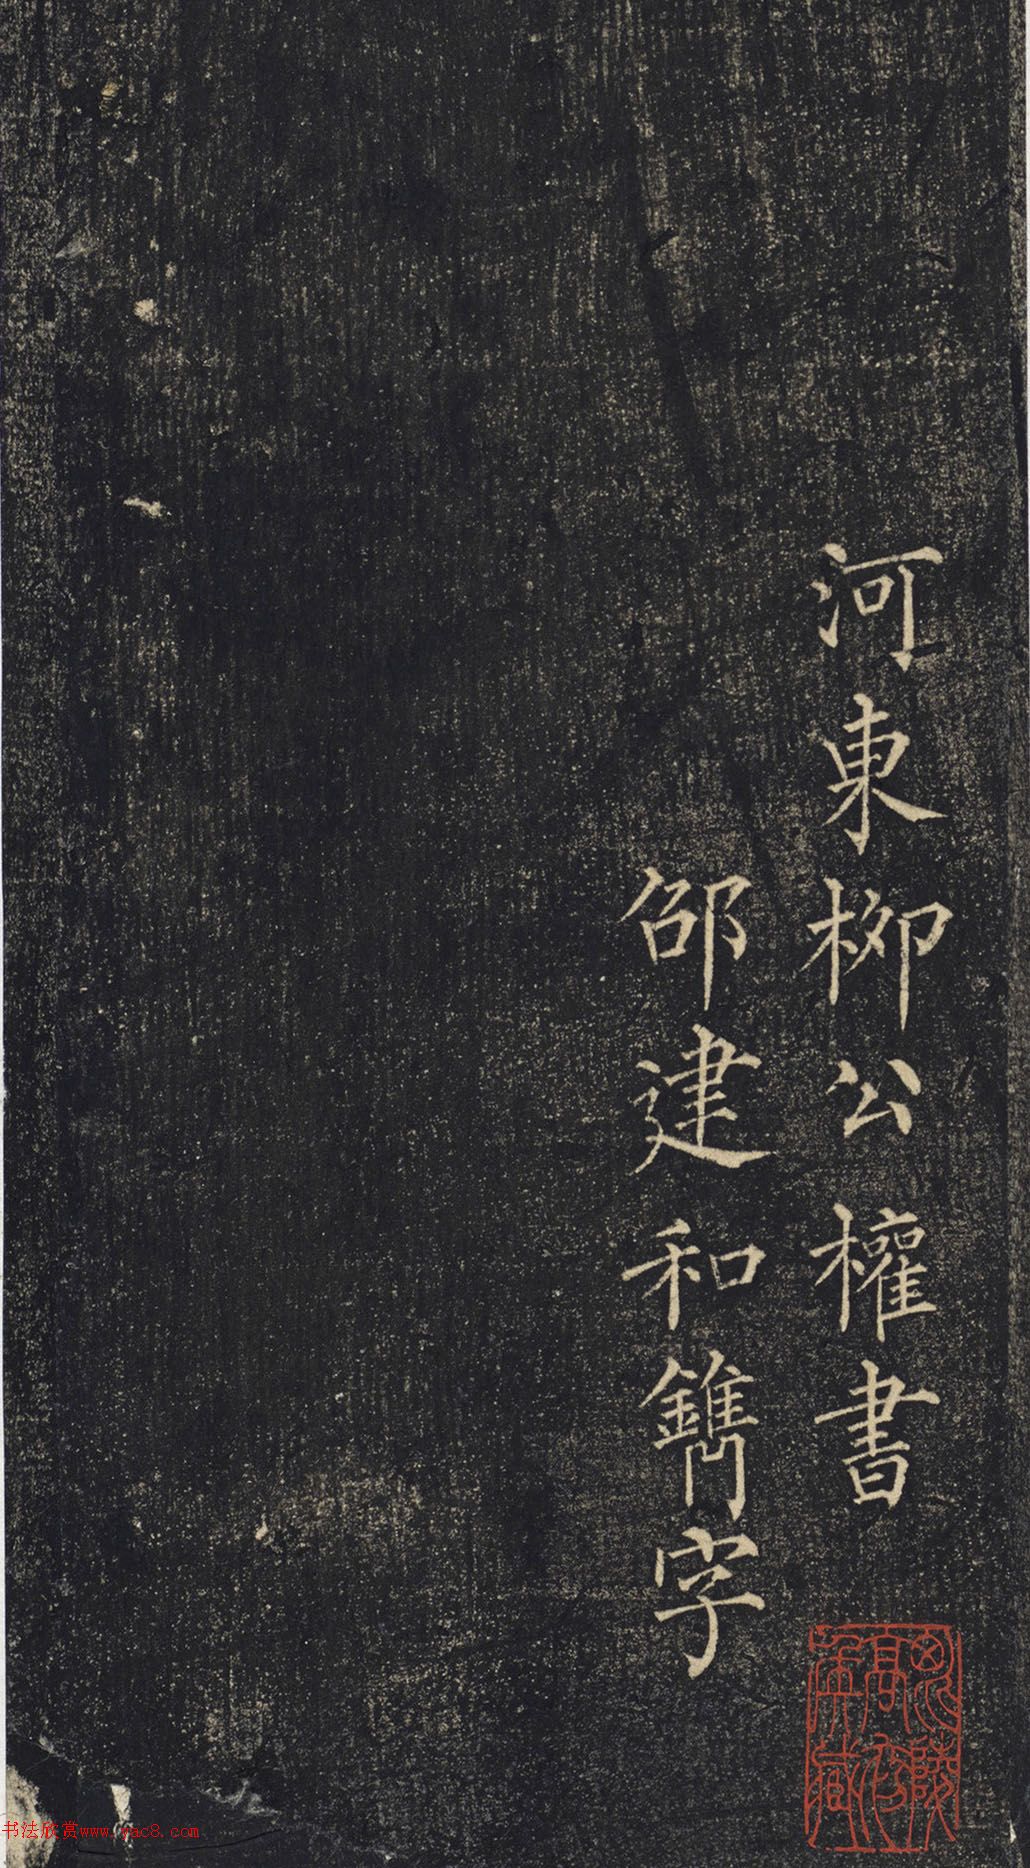 河東柳公權書
邵建和鐫字
书法欣赏www.yac8.com